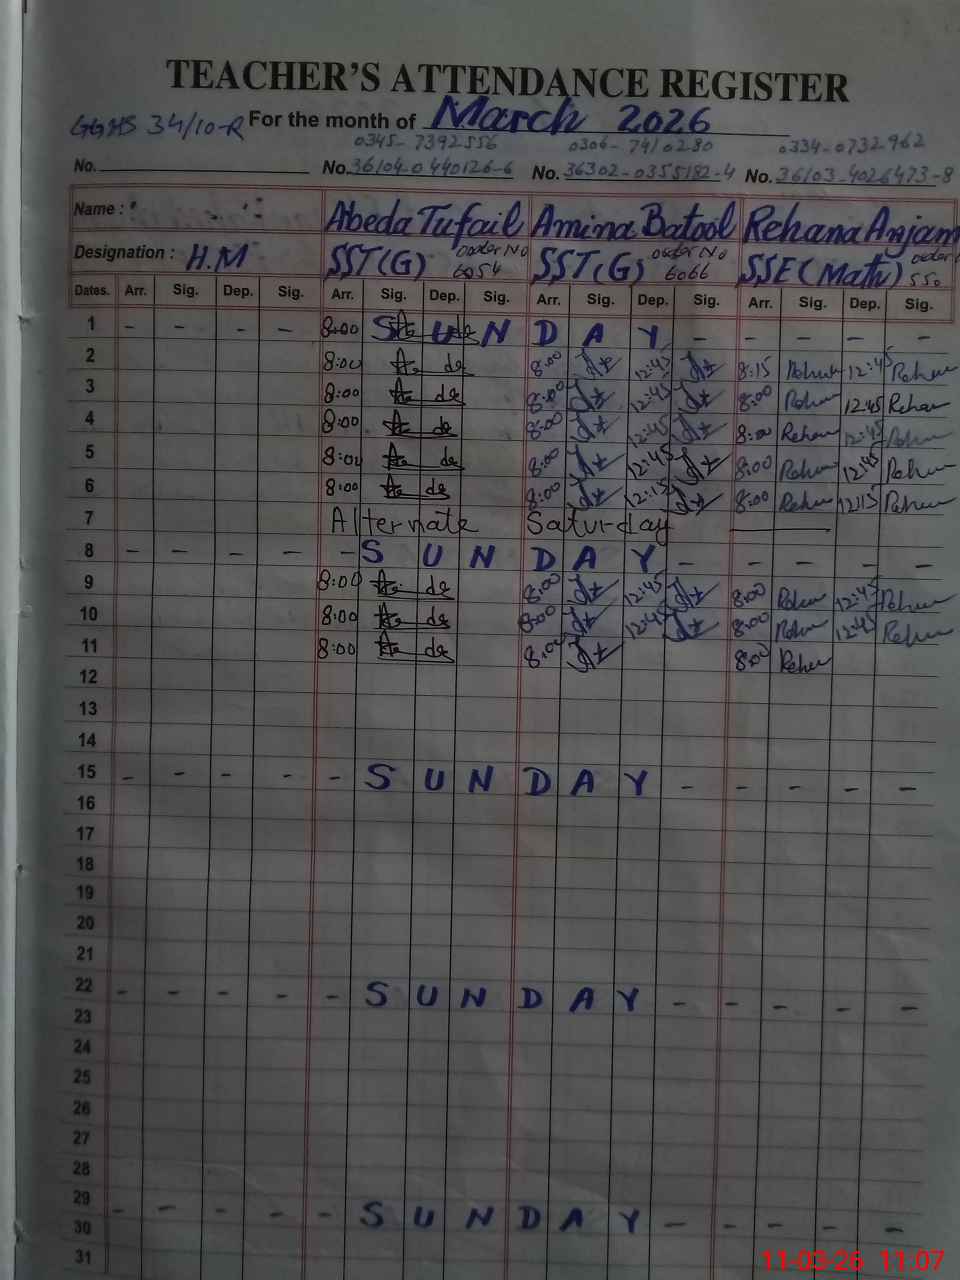 TEACHER'S ATTENDANCE REGISTER
GGHS 34/10-R For the month of March 2026
0345-7392556 0306-7910280 0334-0732962
No. No. 36104-0440126-6 No. 36302-0355182-4 No. 36103-4026473-8
Name : Abeda Tufail Amina Batool Rehana Anjam
Designation : H.M SST(G) order No 6054 SST(G) order No 6066 SSE (Math) order 550
Dates. Arr. Sig. Dep. Sig. Arr. Sig. Dep. Sig. Arr. Sig. Dep. Sig. Arr. Sig. Dep. Sig.
1 - - - - 8:00 S U N D A Y - - - - -
2 8:00 8:00 12:45 8:15 Rehan 12:45 Rehan
3 8:00 8:00 12:45 8:00 Rehan 12:45 Rehan
4 8:00 8:00 12:45 8:00 Rehan 12:45 Rehan
5 8:00 8:00 12:45 8:00 Rehan 12:45 Rehan
6 8:00 8:00 12:15 8:00 Rehan 12:15 Rehan
7 Alternate Saturday
8 - - - - - S U N D A Y - - - - -
9 8:00 8:00 12:45 8:00 Rehan 12:45 Rehan
10 8:00 8:00 12:45 8:00 Rehan 12:45 Rehan
11 8:00 8:00 8:00 Rehan
12
13
14
15 - - - - - S U N D A Y - - - - -
16
17
18
19
20
21
22 - - - - - S U N D A Y - - - - -
23
24
25
26
27
28
29 - - - - - S U N D A Y - - - - -
30
31
11-03-26 11:07